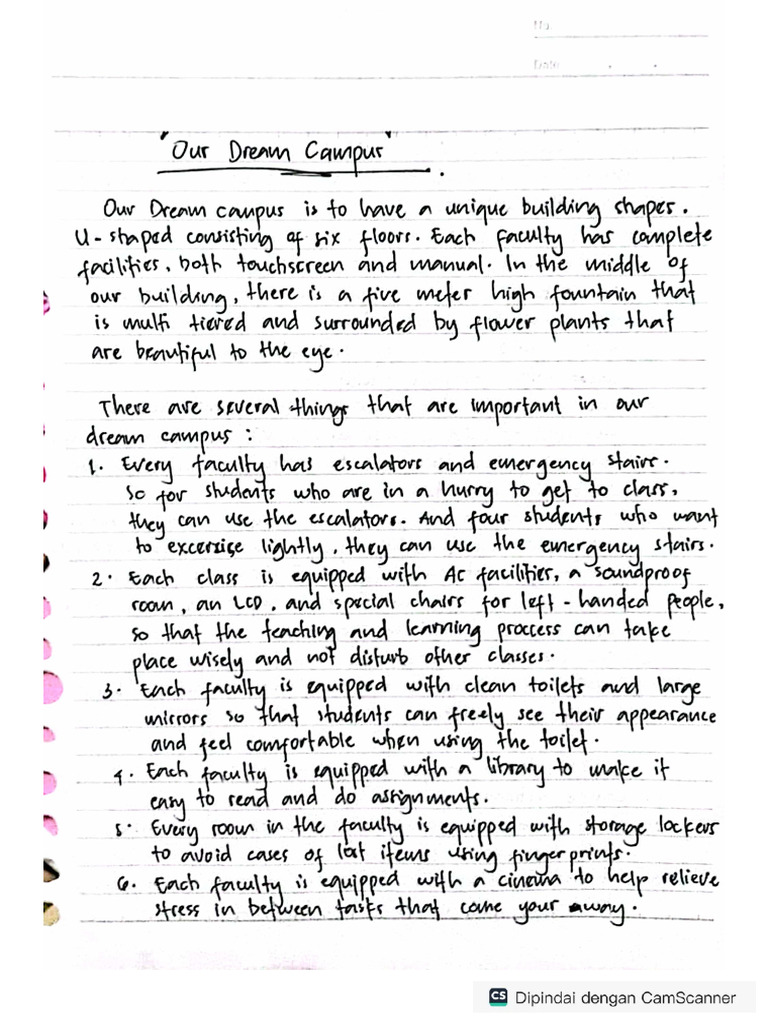 No.
Date
"Our Dream Campus"
Our Dream campus is to have a unique building shapes.
U-shaped consisting of six floors. Each faculty has complete
facilities, both touchscreen and manual. In the middle of
our building, there is a five meter high fountain that
is multi tiered and surrounded by flower plants that
are beautiful to the eye.
There are several things that are important in our
dream campus :
1. Every faculty has escalators and emergency stairs.
So for students who are in a hurry to get to class,
they can use the escalators. And four students who want
to excersise lightly, they can use the emergency stairs.
2. Each class is equipped with AC facilities, a soundproof
room, an LCD, and special chairs for left-handed people,
so that the teaching and learning proccess can take
place wisely and not disturb other classes.
3. Each faculty is equipped with clean toilets and large
mirrors so that students can freely see their appearance
and feel comfortable when using the toilet.
4. Each faculty is equipped with a library to make it
easy to read and do assignments.
5. Every room in the faculty is equipped with storage lockers
to avoid cases of lost items using fingerprints.
6. Each faculty is equipped with a cinema to help relieve
stress in between tasks that come your away.
CS Dipindai dengan CamScanner